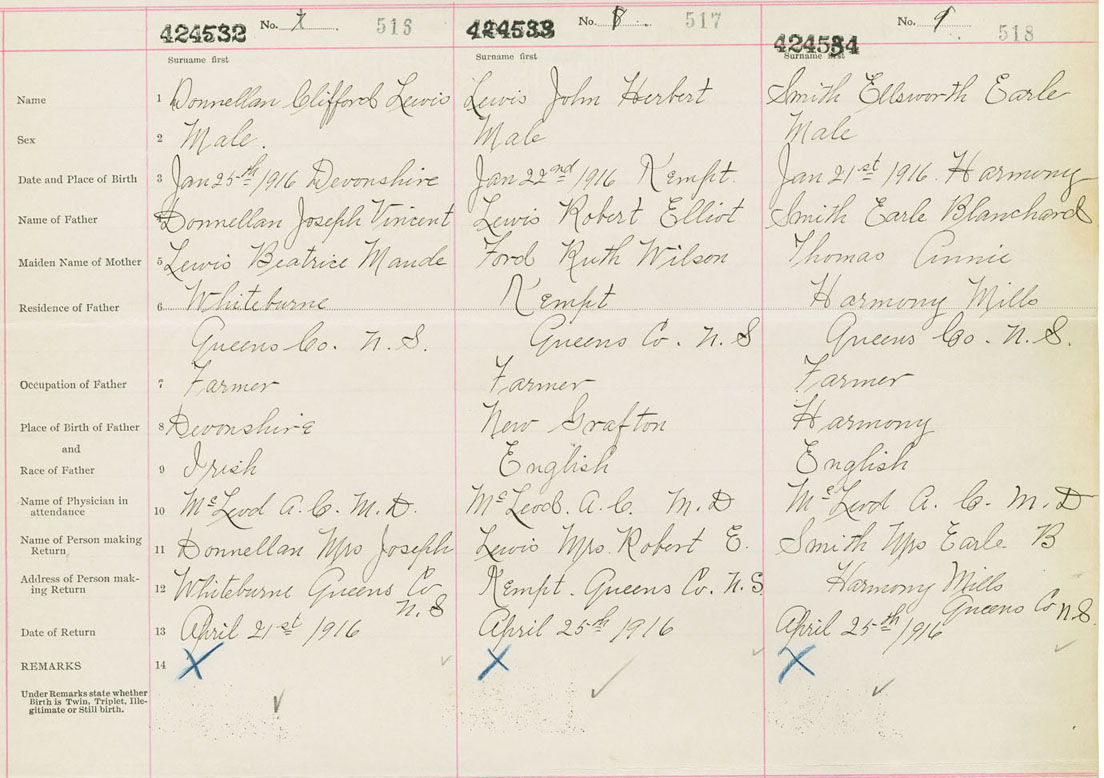 424532 No. 7 516 424533 No. 8 517 424534 No. 9 518
Surname first Surname first
Name 1 Donnellan Clifford Lewis Lewis John Herbert Smith Ellsworth Earle
Sex 2 Male. Male Male
Date and Place of Birth 3 Jan 25th 1916 Devonshire Jan 22nd 1916 Kempt. Jan 21st 1916. Harmony
Name of Father Donnellan Joseph Vincent Lewis Robert Elliot Smith Earle Blanchard
Maiden Name of Mother 5 Lewis Beatrice Maude Ford Ruth Wilson Thomas Annie
Residence of Father 6 Whiteburne Kempt Harmony Mills
Queens Co. N. S. Queens Co. N. S Queens Co. N. S.
Occupation of Father 7 Farmer Farmer Farmer
Place of Birth of Father 8 Devonshire New Grafton Harmony
and
Race of Father 9 Irish English English
Name of Physician in
attendance 10 McLeod A. C. M. D. McLeod. A. C. M. D McLeod A. C. M. D
Name of Person making
Return 11 Donnellan Mrs Joseph Lewis Mrs. Robert E. Smith Mrs Earle B
Address of Person mak-
ing Return 12 Whiteburne Queens Co N. S Kempt. Queens Co. N. S. Harmony Mills Queens Co N. S.
Date of Return 13 April 21st 1916 April 25th 1916 April 25th 1916
REMARKS 14 X X X
Under Remarks state whether
Birth is Twin, Triplet, Ille-
gitimate or Still birth.